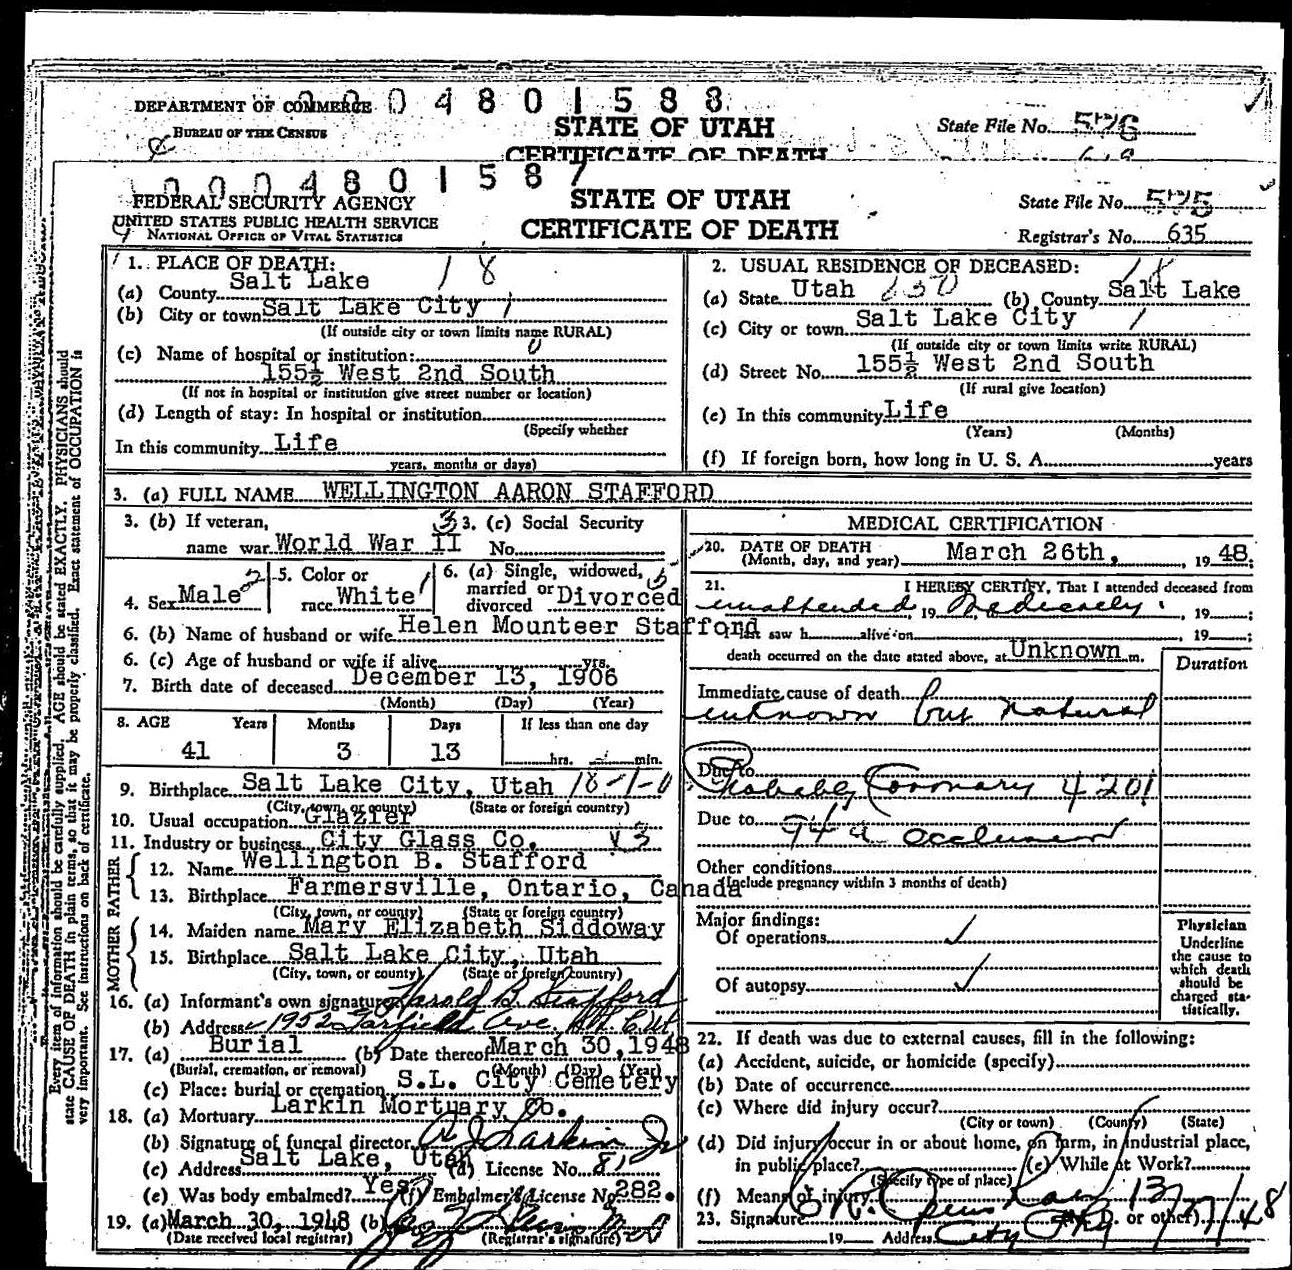 DEPARTMENT OF COMMERCE
0004801588
BUREAU OF THE CENSUS
STATE OF UTAH
CERTIFICATE OF DEATH
State File No. 576
0004801587
FEDERAL SECURITY AGENCY
UNITED STATES PUBLIC HEALTH SERVICE
NATIONAL OFFICE OF VITAL STATISTICS
STATE OF UTAH
CERTIFICATE OF DEATH
State File No. 575
Registrar's No. 635
Every item of information should be carefully supplied. AGE should be stated EXACTLY. PHYSICIANS should
state CAUSE OF DEATH in plain terms, so that it may be properly classified. Exact statement of OCCUPATION is
very important. See instructions on back of certificate.
1. PLACE OF DEATH: 18
(a) County Salt Lake
(b) City or town Salt Lake City 1
(If outside city or town limits name RURAL)
(c) Name of hospital or institution: 0
155½ West 2nd South
(If not in hospital or institution give street number or location)
(d) Length of stay: In hospital or institution
(Specify whether
In this community Life
years, months or days)
2. USUAL RESIDENCE OF DECEASED: 18
(a) State Utah (b) County Salt Lake
(c) City or town Salt Lake City 1
(If outside city or town limits write RURAL)
(d) Street No. 155½ West 2nd South
(If rural give location)
(e) In this community Life
(Years) (Months)
(f) If foreign born, how long in U. S. A. years
3. (a) FULL NAME WELLINGTON AARON STAFFORD
3. (b) If veteran, 3 3. (c) Social Security
name war World War II No.
4. Sex Male 2 5. Color or race White 1 6. (a) Single, widowed, married or divorced Divorced 5
6. (b) Name of husband or wife Helen Mounteer Stafford
6. (c) Age of husband or wife if alive yrs.
7. Birth date of deceased December 13, 1906
(Month) (Day) (Year)
8. AGE Years Months Days If less than one day
41 3 13 hrs. min.
9. Birthplace Salt Lake City, Utah 18-1-0
(City, town, or county) (State or foreign country)
10. Usual occupation Glazier
11. Industry or business City Glass Co.
FATHER
12. Name Wellington B. Stafford
13. Birthplace Farmersville, Ontario, Canada
(City, town, or county) (State or foreign country)
MOTHER
14. Maiden name Mary Elizabeth Siddoway
15. Birthplace Salt Lake City, Utah
(City, town, or county) (State or foreign country)
16. (a) Informant's own signature Harold B. Stafford
(b) Address 1952 Garfield Ave.
17. (a) Burial (b) Date thereof March 30, 1948
(Burial, cremation, or removal) (Month) (Day) (Year)
(c) Place: burial or cremation S.L. City Cemetery
18. (a) Mortuary Larkin Mortuary Co.
(b) Signature of funeral director A J Larkin Jr
(c) Address Salt Lake, Utah (d) License No. 81
(e) Was body embalmed? Yes (f) Embalmer's License No. 282.
19. (a) March 30, 1948 (b)
(Date received local registrar) (Registrar's signature)
MEDICAL CERTIFICATION
20. DATE OF DEATH
(Month, day, and year) March 26th, 1948;
21. I HEREBY CERTIFY, That I attended deceased from
unattended, 19 Medically. , 19 ;
I last saw h alive on , 19 ;
death occurred on the date stated above, at Unknown m.
Duration
Immediate cause of death
unknown but natural
Due to
Probably Coronary 4201
Due to 94a occlusion
Other conditions
(Include pregnancy within 3 months of death)
Major findings:
Of operations
Of autopsy
Physician
Underline
the cause to
which death
should be
charged sta-
tistically.
22. If death was due to external causes, fill in the following:
(a) Accident, suicide, or homicide (specify)
(b) Date of occurrence
(c) Where did injury occur?
(City or town) (County) (State)
(d) Did injury occur in or about home, on farm, in industrial place,
in public place? (e) While at Work?
(Specify type of place)
(f) Means of injury
23. Signature (M.D. or other)
19 Address City